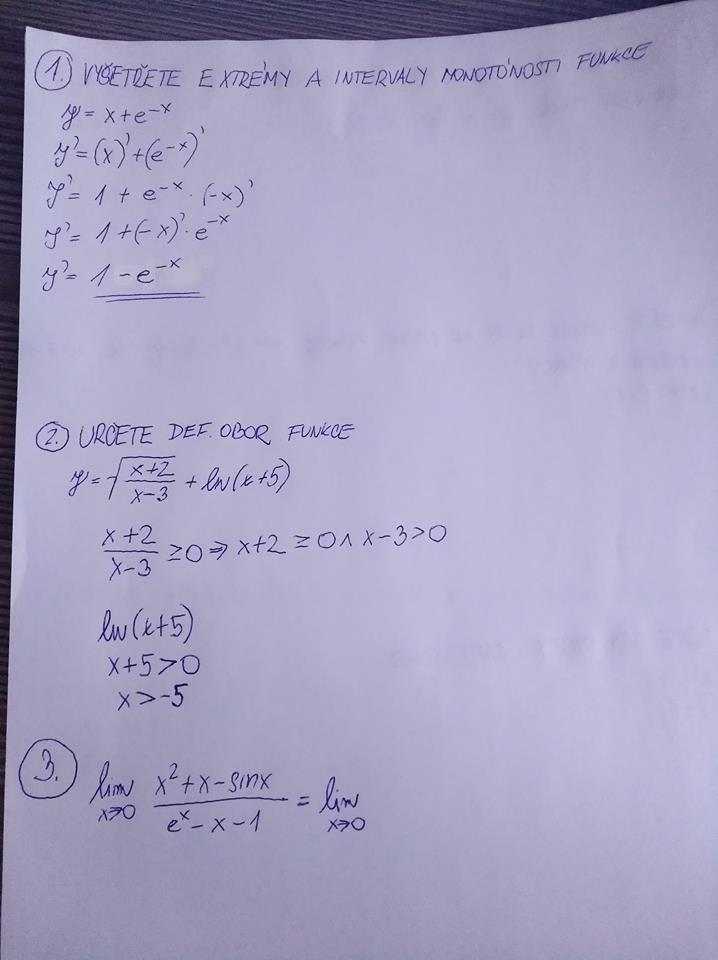 1. VYŠETŘETE EXTRÉMY A INTERVALY MONOTÓNOSTI FUNKCE
y = x + e^-x
y' = (x)' + (e^-x)'
y' = 1 + e^-x · (-x)'
y' = 1 + (-x)' · e^-x
y' = 1 - e^-x
2. URČETE DEF. OBOR FUNKCE
y = √((x+2)/(x-3)) + ln(x+5)
(x+2)/(x-3) ≥ 0 ⇒ x+2 ≥ 0 ∧ x-3 > 0
ln(x+5)
x+5 > 0
x > -5
3. lim x→0 (x² + x - sinx)/(e^x - x - 1) = lim x→0